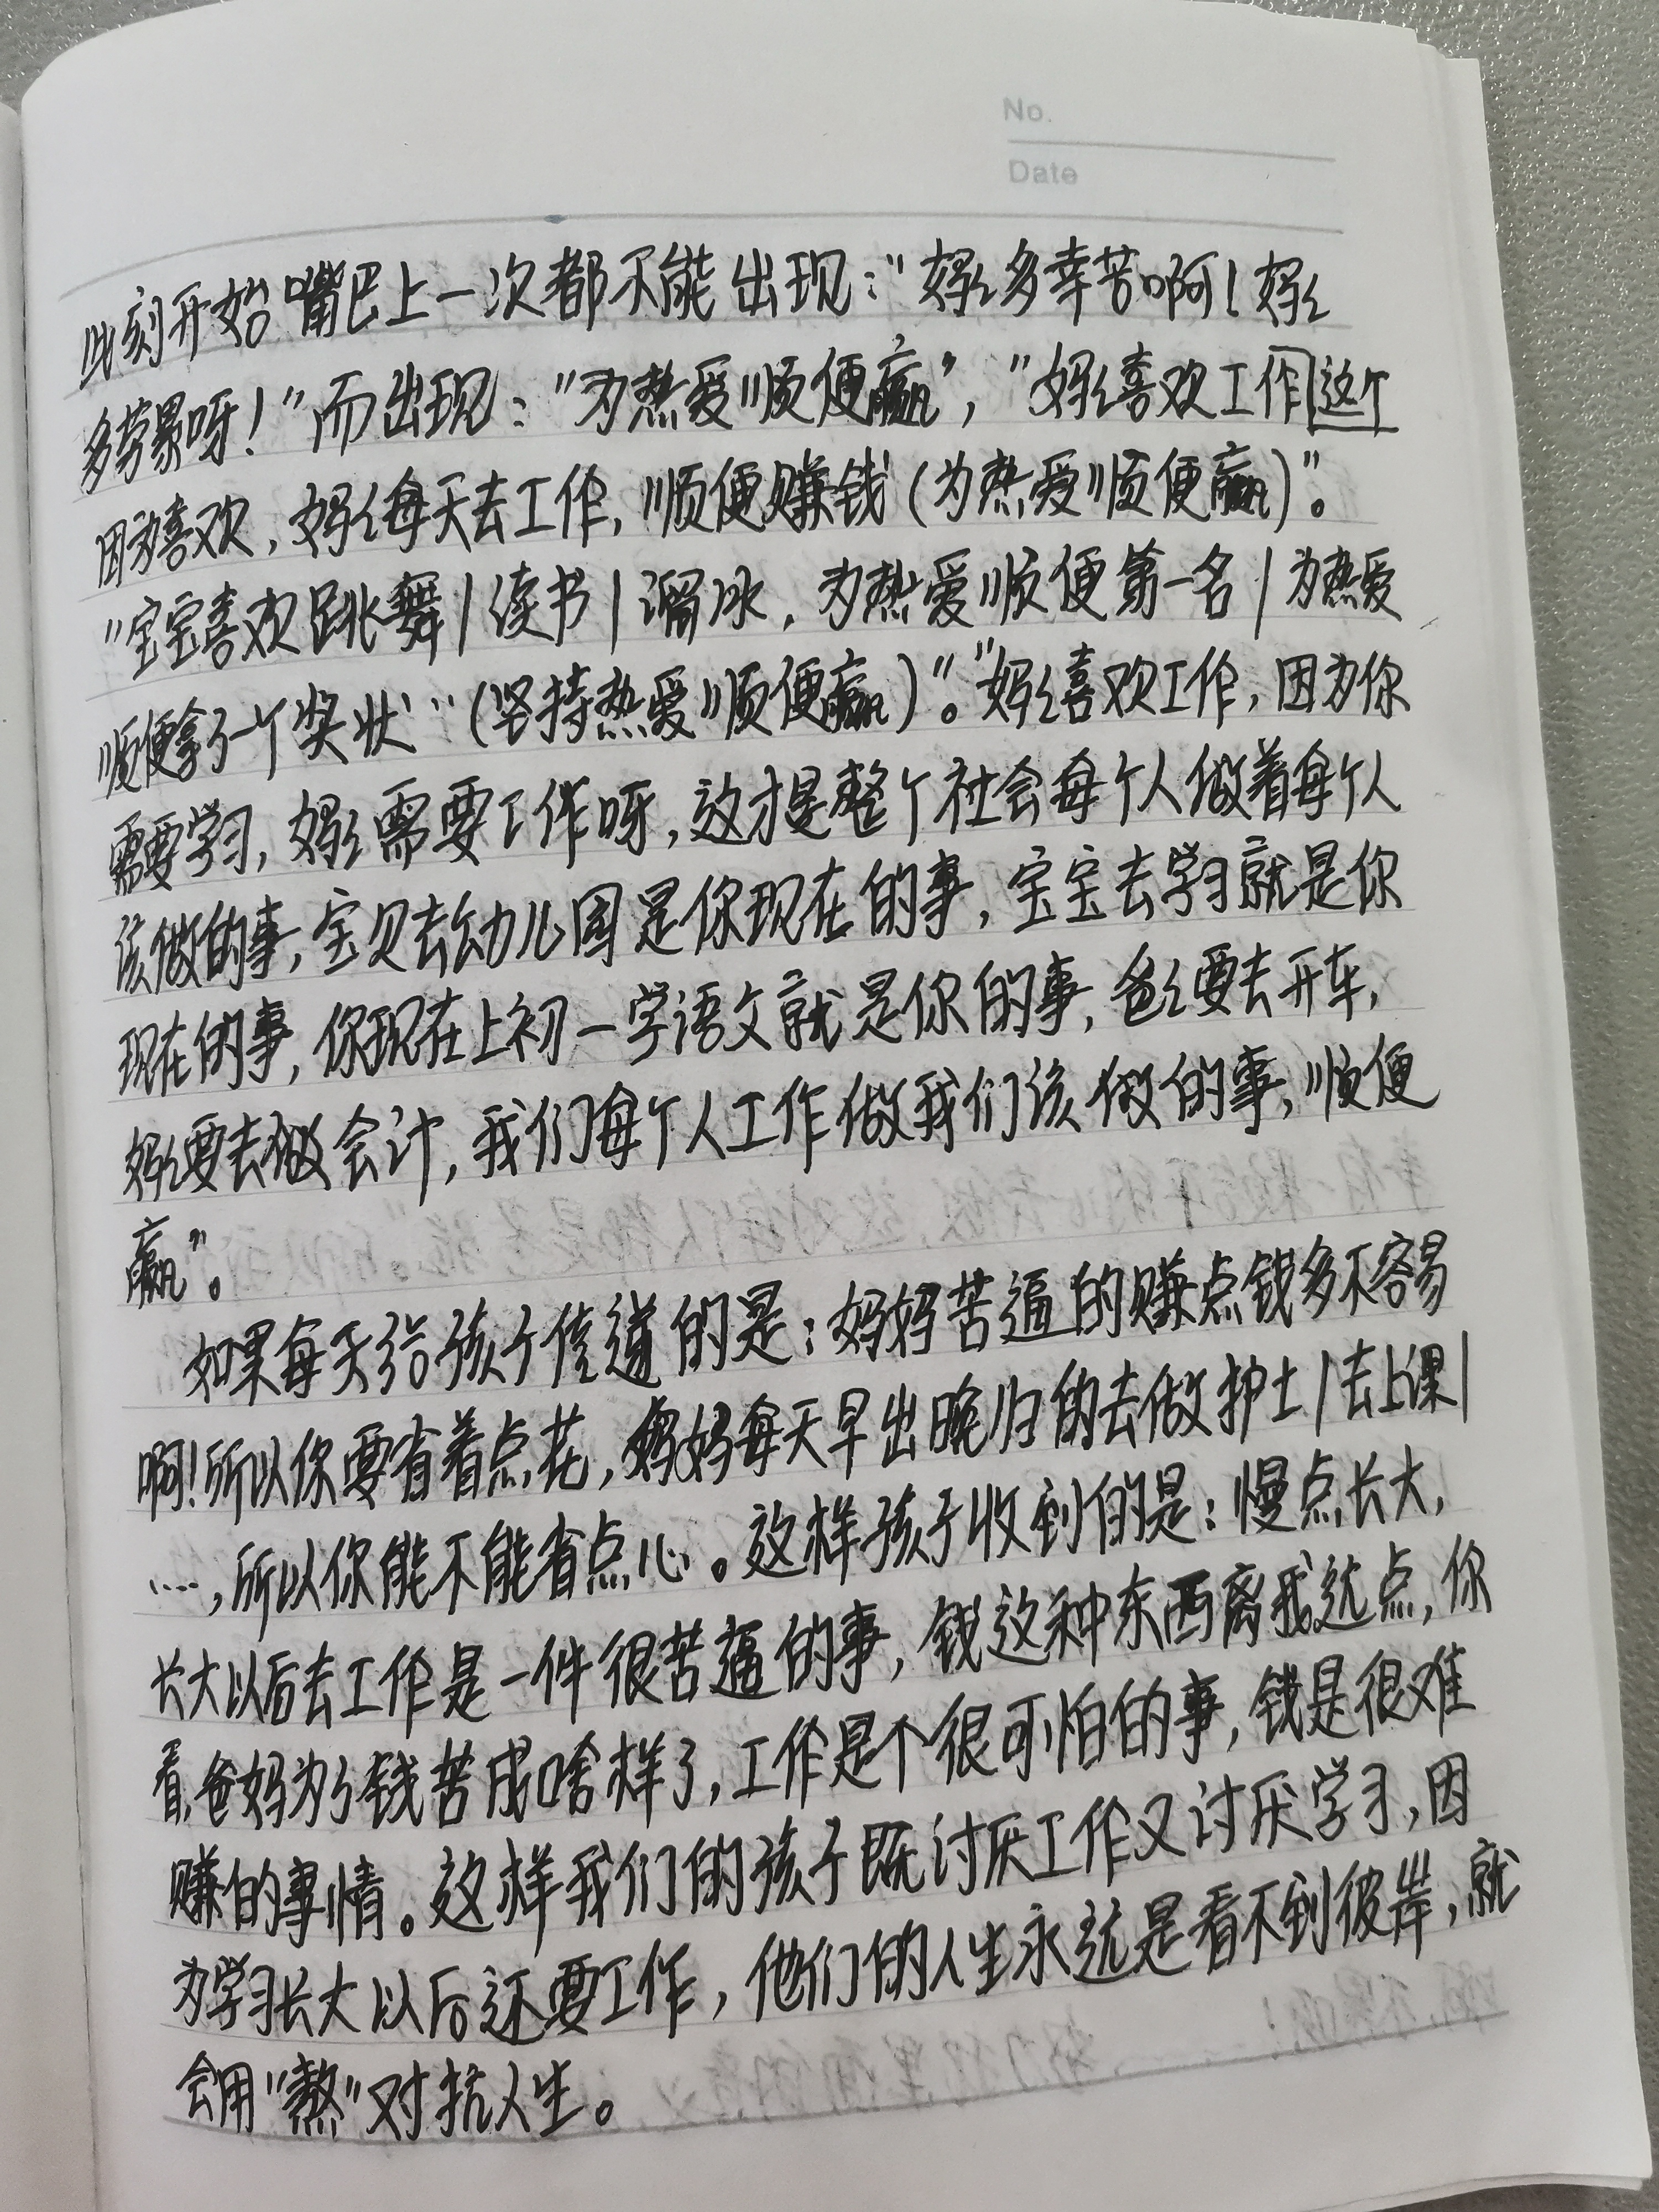 No.
Date
此刻开始嘴巴上一次都不能出现：“妈妈多幸苦啊！妈妈
多劳累呀！”而出现：“为热爱顺便赢”，“妈妈喜欢工作这个
因为喜欢，妈妈每天去工作，顺便赚钱（为热爱顺便赢）”。
“宝宝喜欢跳舞/读书/溜冰，为热爱顺便第一名/为热爱
顺便拿了一个奖状…（坚持热爱顺便赢）”。“妈妈喜欢工作，因为你
需要学习，妈妈需要工作呀，这才是整个社会每个人做着每个人
该做的事，宝贝去幼儿园是你现在的事，宝宝去学习就是你
现在的事，你现在上初一学语文就是你的事，爸爸要去开车，
妈妈要去做会计，我们每个人工作做我们该做的事，顺便
赢”。
如果每天给孩子传道的是：妈妈苦逼的赚点钱多不容易
啊！所以你要省着点花，妈妈每天早出晚归的去做护士/去上课/
……，所以你能不能省点心。这样孩子收到的是：慢点长大，
长大以后去工作是一件很苦逼的事，钱这种东西离我远点，你
看，爸妈为了钱苦成啥样了，工作是个很可怕的事，钱是很难
赚的事情。这样我们的孩子既讨厌工作又讨厌学习，因
为学习长大以后还要工作，他们的人生永远是看不到彼岸，就
会用“熬”对抗人生。